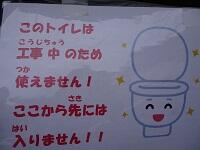 このトイレは
こうじちゅう
工事中のため
つか
使えません！
さき
ここから先には
はい
入りません！！